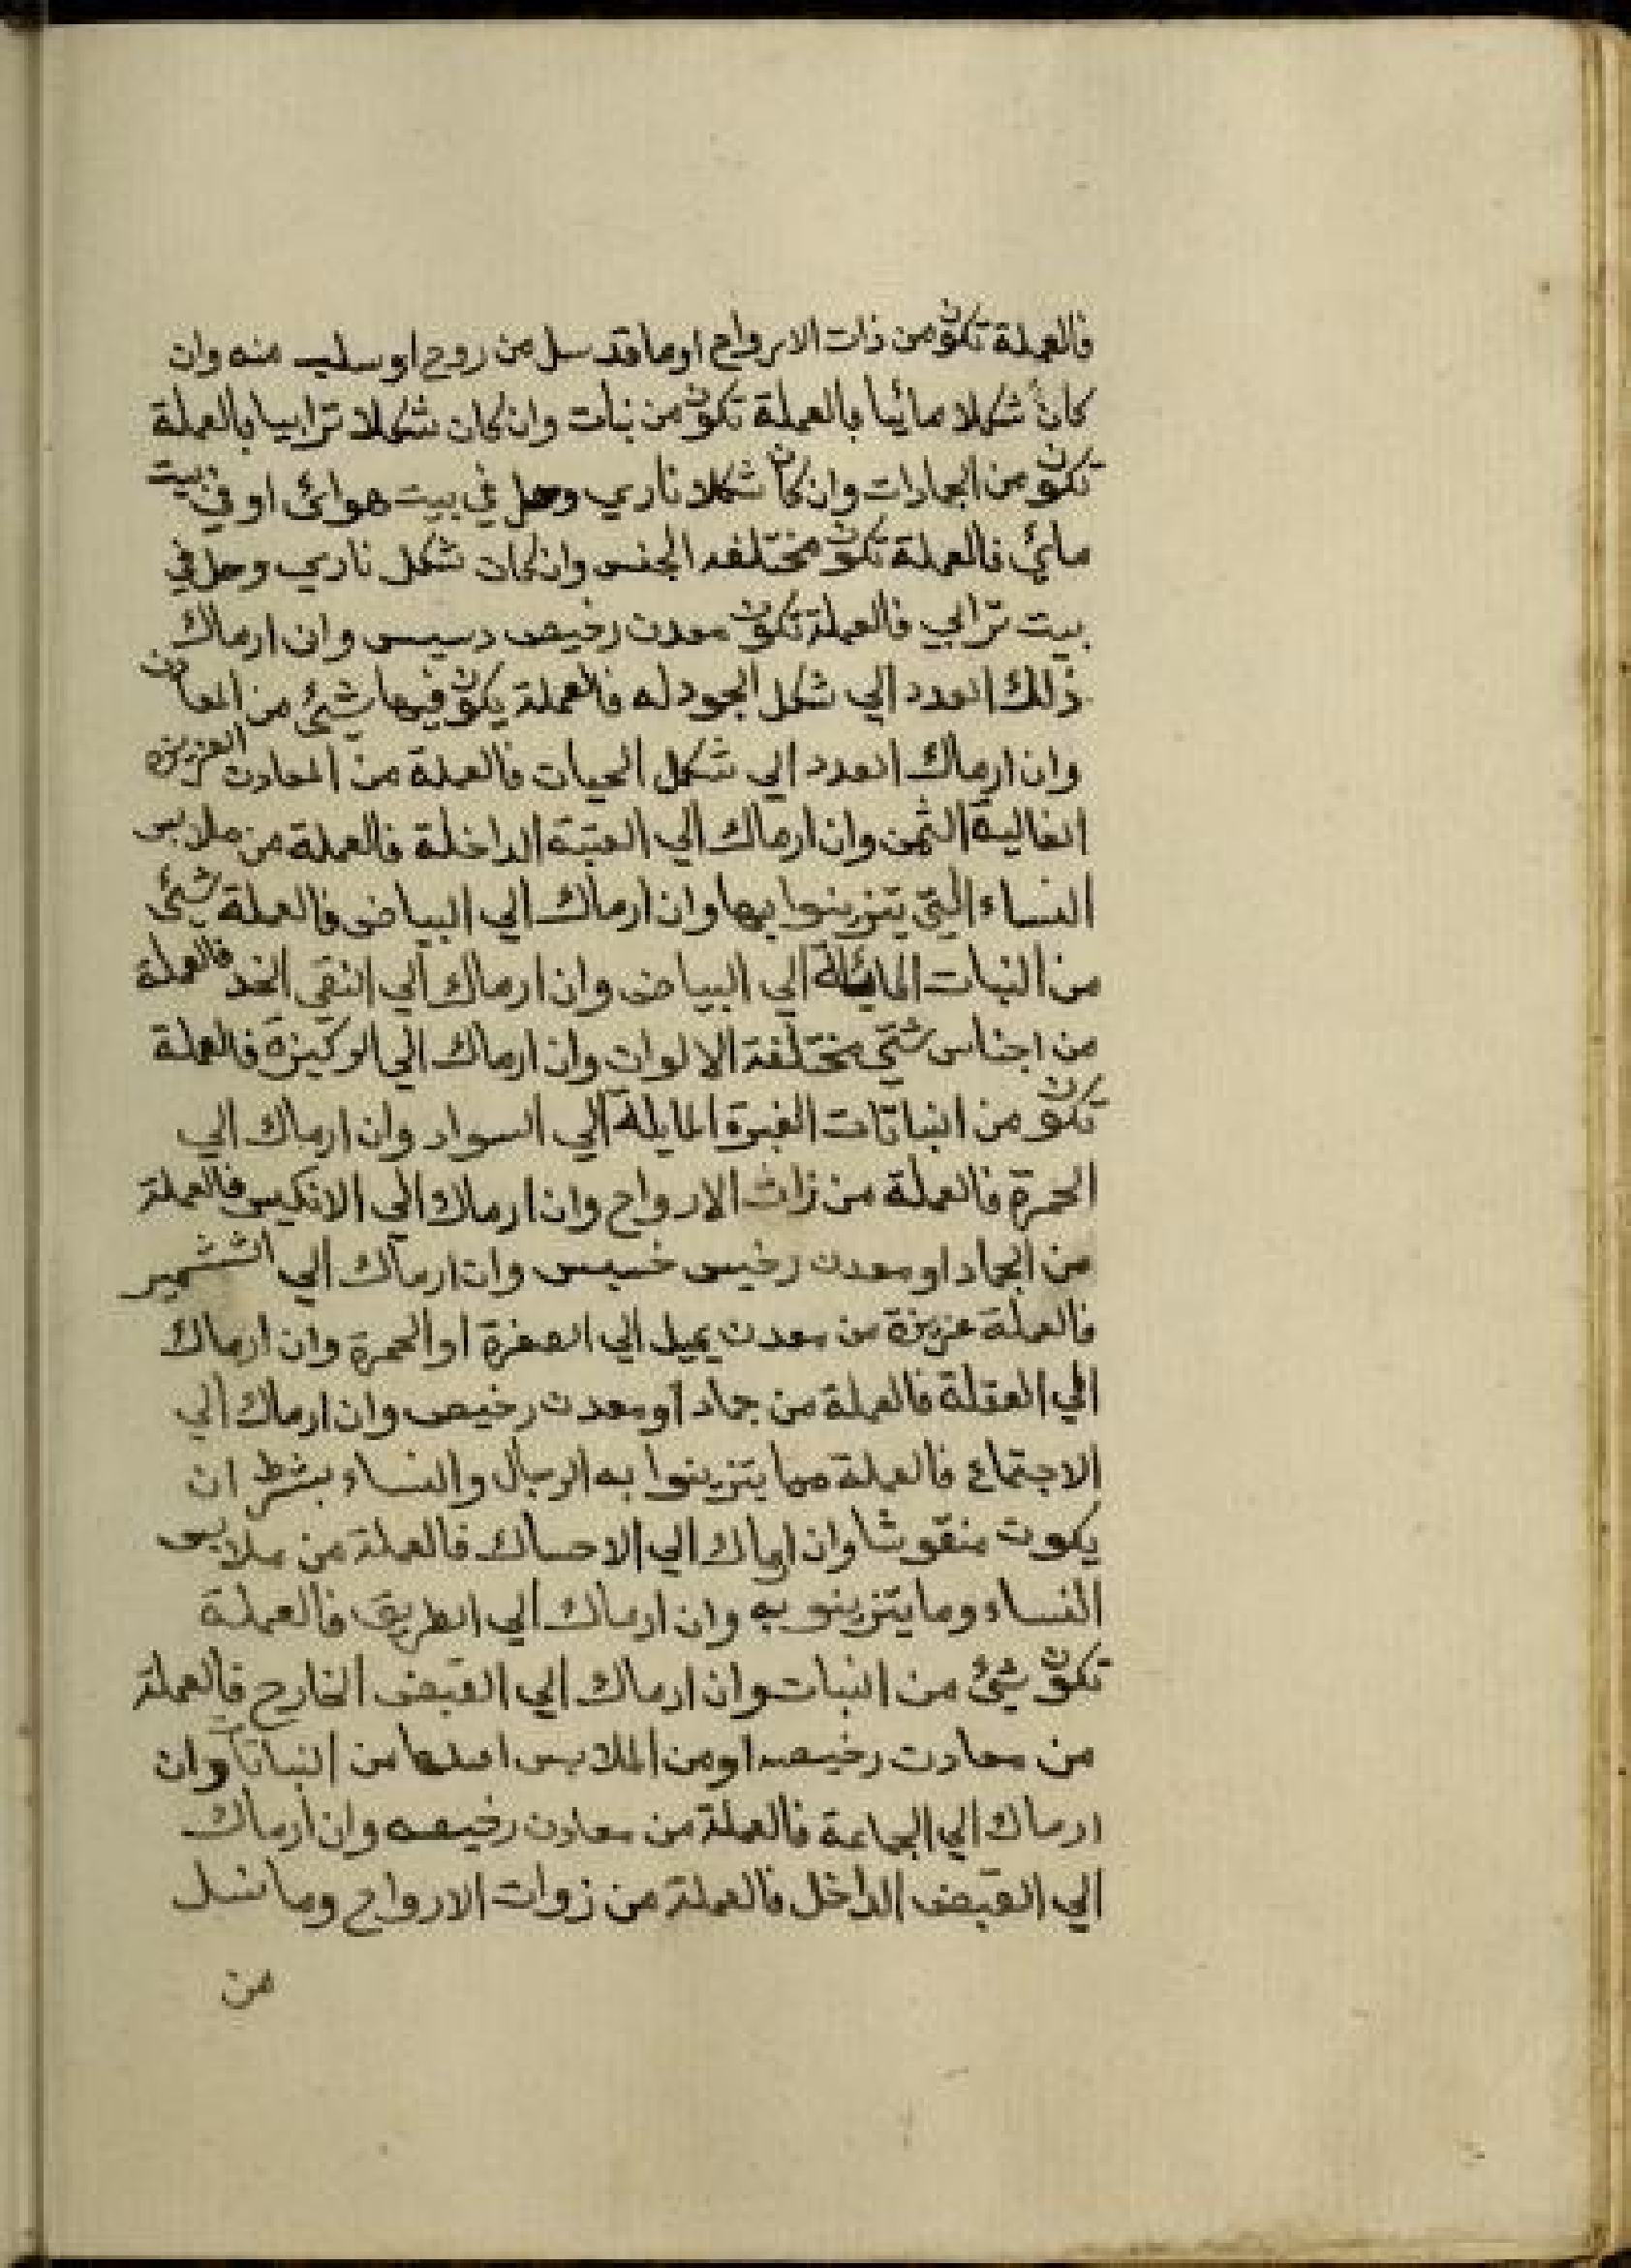 فالعملة تكون من ذات الارواح اوما قد سل من روح او سلب منه وان
كان شكلا مائيا بالعملة تكون من نبات وان كان شكلا ترابيا بالعملة
تكون من الجمادات وان كان شكلا ناري وحل في بيت هوائ او في بيت
مائي فالعملة تكون مختلفه الجنس وان كان شكل ناري وحل في
بيت ترابي فالعملة تكون معدن رخيص دسيس وان ارماك
ذلك العدد الي شكل الجودله فالعملة يكون فيها شيئ من المعادن
وان ارماك العدد الي شكل الحيان فالعملة من المعادن العزيزه
الغالية الثمن وان ارماك الي العتبة الداخلة فالعملة من ملابس
النساء التي يتزينوا بها وان ارماك الي البياض فالعملة شيئ
من النبات المائلة الي البياض وان ارماك الي النقي الخد فالعملة
من اجناس شتي مختلفة الالوان وان ارماك الي الركيزة فالعملة
تكون من النباتات الغبرة المايلة الي السواد وان ارماك الي
الحمرة فالعملة من زات الارواح وان ارماك الي الانكيس فالعملة
من الجماد او معدن رخيس خسيس وان ارماك الي الشمير
فالعملة عزيزة من معدن يميل الي الصفرة او الحمرة وان ارماك
الي العقلة فالعملة من جماد او معدن رخيص وان ارماك الي
الاجتماع فالعملة مما يتزينوا به الرجال والنساء بشرط ان
يكون منقوشا وان ارماك الي الاحساك فالعملة من ملابس
النساء وما يتزينو به وان ارماك الي الطريق فالعملة
تكون شيئ من النبات وان ارماك الي القبض الخارج فالعملة
من معادن رخيصه او من الملابس اصلها من النباتا وان
ارماك الي الجماعة فالعملة من معادن رخيصه وان ارماك
الي القبض الداخل فالعملة من زوات الارواح وما نسل
من